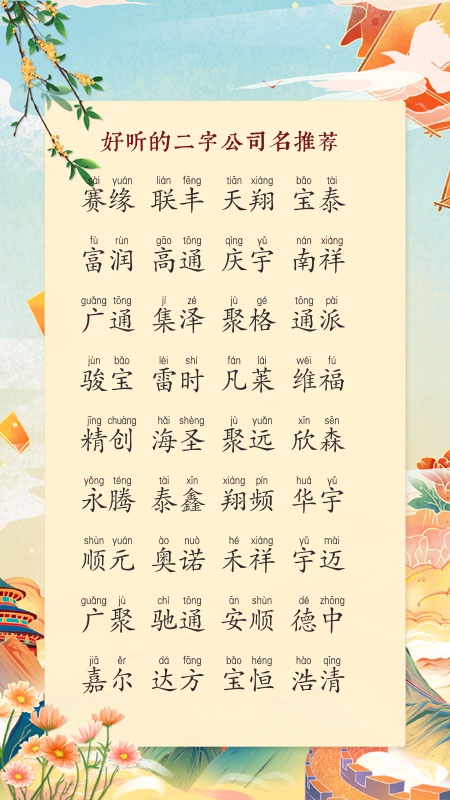 好听的二字公司名推荐
sài yuán lián fēng tiān xiáng bǎo tài
赛缘 联丰 天翔 宝泰
fù rùn gāo tōng qìng yǔ nán xiáng
富润 高通 庆宇 南祥
guǎng tōng jí zé jù gé tōng pài
广通 集泽 聚格 通派
jùn bǎo léi shí fán lái wéi fú
骏宝 雷时 凡莱 维福
jīng chuàng hǎi shèng jù yuǎn xīn sēn
精创 海圣 聚远 欣森
yǒng téng tài xīn xiáng pín huá yǔ
永腾 泰鑫 翔频 华宇
shùn yuán ào nuò hé xiáng yǔ mài
顺元 奥诺 禾祥 宇迈
guǎng jù chí tōng ān shùn dé zhōng
广聚 驰通 安顺 德中
jiā ěr dá fāng bǎo héng hào qīng
嘉尔 达方 宝恒 浩清